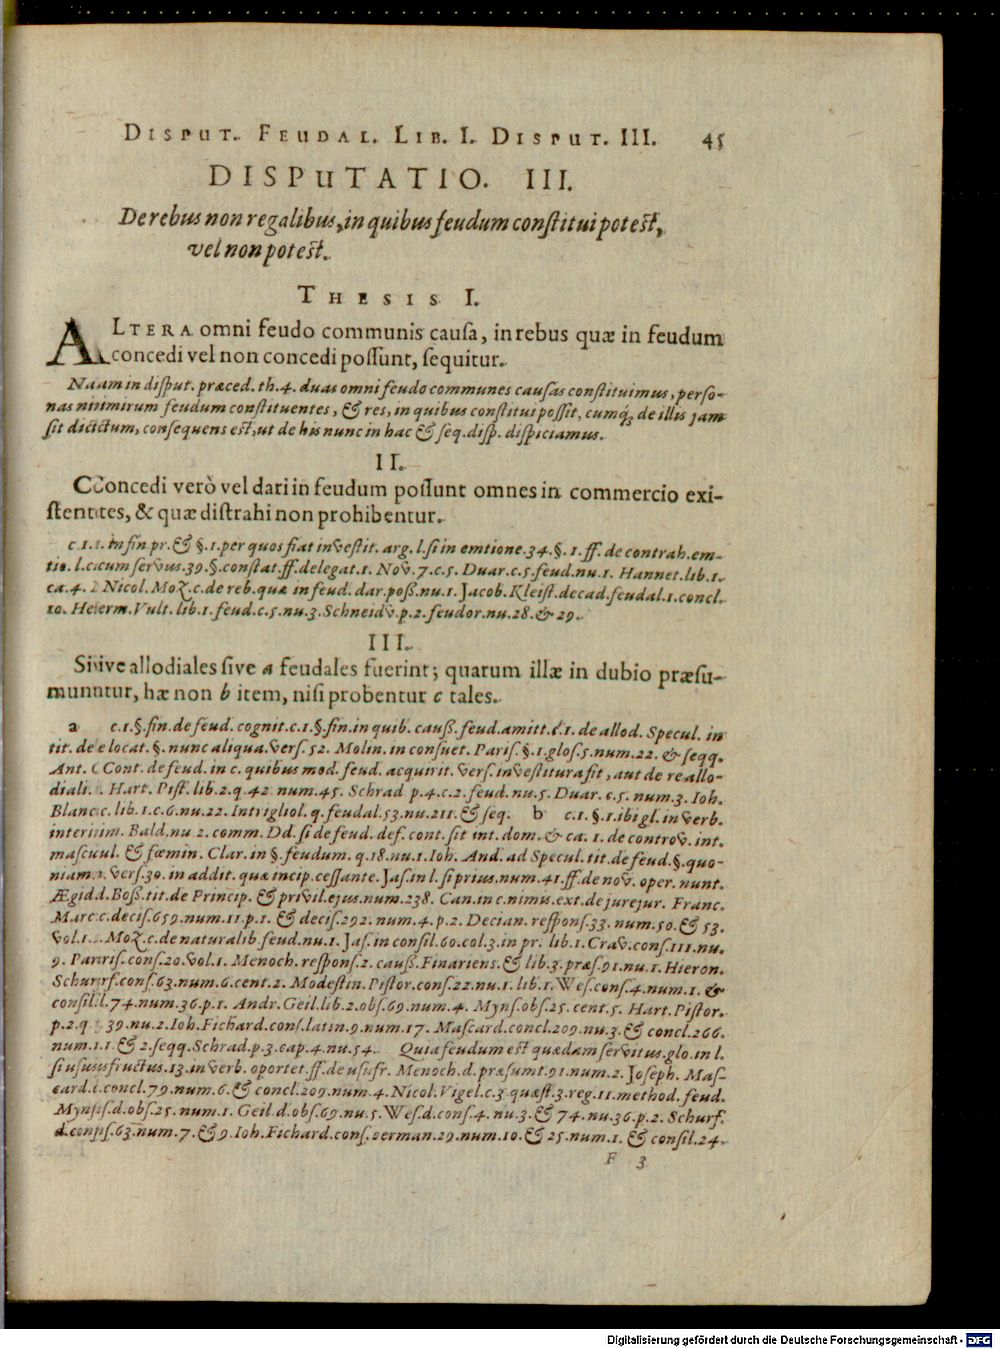 DISPUT. FEUDAL. LIB. I. DISPUT. III. 45
DISPUTATIO. III.
De rebus non regalibus, in quibus feudum constitui potest,
vel non potest.
THESIS I.
ALTERA omni feudo communis causa, in rebus quæ in feudum
concedi vel non concedi possunt, sequitur.
Nam in disput. præced. th. 4. duas omni feudo communes causas constituimus, perso-
nas nimirum feudum constituentes, & res, in quibus constitui possit, cumq́; de illis jam
sit dictum, consequens est, ut de his nunc in hac & seq. disp. dispiciamus.
II.
Concedi verò vel dari in feudum possunt omnes in commercio exi-
stentes, & quæ distrahi non prohibentur.
c. 1. in fin pr. & §. 1. per quos fiat investit. arg. l. si in emtione. 34. §. 1. ff. de contrah. em-
tio. l. cum servus. 39. §. constat. ff. delegat. 1. Nov. 7. c. 5. Duar. c. 5. feud. nu. 1. Hannet. lib. 1.
ca. 4. Nicol. Moz. c. de reb. quæ in feud. dar. poß. nu. 1. Jacob. Kleist. decad. feudal. 1. concl.
10. Herm. Vult. lib. 1. feud. c. 5. nu. 3. Schneidv. p. 2. feudor. nu. 28. & 29.
III.
Sive allodiales sive a feudales fuerint; quarum illæ in dubio præsu-
muntur, hæ non b item, nisi probentur c tales.
a c. 1. §. fin. de feud. cognit. c. 1. §. fin. in quib. cauß. feud. amitt. c. 1. de allod. Specul. in
tit. de locat. §. nunc aliqua. vers. 52. Molin. in consuet. Paris. §. 1. glos. 5. num. 22. & seqq.
Ant. Cont. de feud. in c. quibus mod. feud. acquirit. vers. investitura fit, aut de re allo-
diali. Hart. Pist. lib. 2. q. 42 num. 45. Schrad p. 4. c. 2. feud. nu. 5. Duar. c. 5. num. 3. Ioh.
Blanc. lib. 1. c. 6. nu. 22. Intrigliol. q. feudal. 53. nu. 211. & seq. b c. 1. §. 1. ibi gl. in verb.
interim. Bald. nu. 2. comm. Dd. si de feud. def. cont. sit int. dom. & ca. 1. de controv. int.
mascul. & fœmin. Clar. in §. feudum. q. 18. nu. 1. Ioh. And. ad Specul. tit. de feud. §. quo-
niam. vers. 30. in addit. quæ incip. cessante. Jas. in l. si prius. num. 41. ff. de nov. oper. nunt.
Ægid. Boß. tit. de Princip. & privil. ejus. num. 238. Can. in c. nimis. ext. de jurejur. Franc.
Marc. decis. 659. num. 11. p. 1. & decis. 292. num. 4. p. 2. Decian. respons. 33. num. 50. & 53.
vol. 1. Moz. c. de natura lib. feud. nu. 1. Jas. in consil. 60. col. 3. in pr. lib. 1. Crav. cons. 111. nu.
9. Paris. cons. 20. vol. 1. Menoch. respons. 2. cauß. Finariens. & lib. 3. præs. 91. nu. 1. Hieron.
Schurf. cons. 63. num. 6. cent. 2. Modestin. Pistor. cons. 22. nu. 1. lib. 1. Wes. cons. 4. num. 1. &
consil. 74. num. 36. p. 1. Andr. Geil. lib. 2. obs. 69. num. 4. Myns. obs. 25. cent. 5. Hart. Pistor.
p. 2. q. 39. nu. 2. Ioh. Fichard. cons. latin. 9. num. 17. Mascard. concl. 209. nu. 3. & concl. 266.
num. 1. & 2. seqq. Schrad. p. 3. cap. 4. nu. 54. Quia feudum est quædam servitus. glo. in l.
si ususfructus. 13. in verb. oportet. ff. de usufr. Menoch. d. præsumt. 91. num. 2. Joseph. Mas-
card. concl. 79. num. 6. & concl. 209. num. 4. Nicol. Vigel. c. 3. quæst. 3. reg. 11. method. feud.
Myns. d. obs. 25. num. 1. Geil. d. obs. 69. nu. 5. Wes. d. cons. 4. nu. 3. & 74. nu. 36. p. 2. Schurf.
d. cons. 63. num. 7. & 9. Ioh. Fichard. cons. german. 29. num. 10. & 25. num. 1. & consil. 24.
F 3
Digitalisierung gefördert durch die Deutsche Forschungsgemeinschaft - DFG